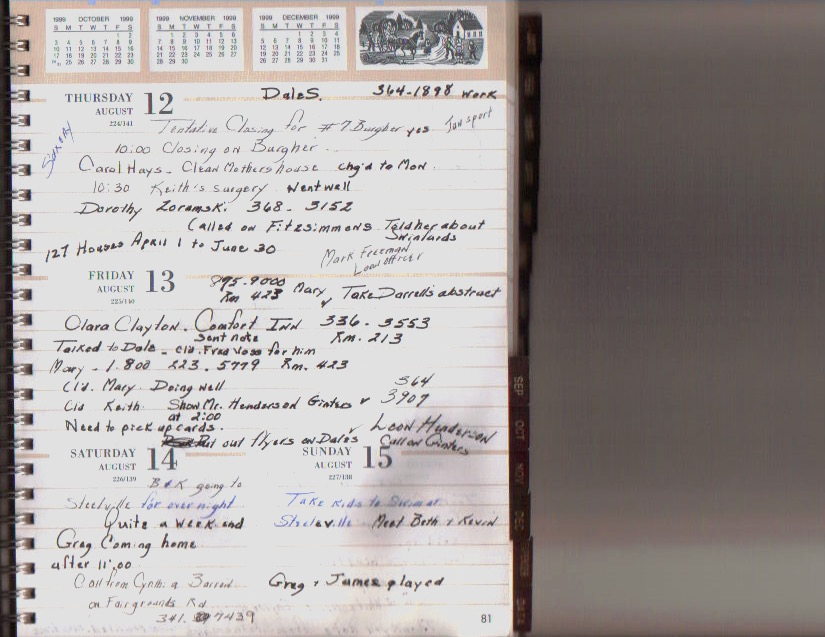 1999 OCTOBER 1999
S M T W T F S
1 2
3 4 5 6 7 8 9
10 11 12 13 14 15 16
17 18 19 20 21 22 23
25 26 27 28 29 30
1999 NOVEMBER 1999
S M T W T F S
1 2 3 4 5 6
7 8 9 10 11 12 13
14 15 16 17 18 19 20
21 22 23 24 25 26 27
28 29 30
1999 DECEMBER 1999
S M T W T F S
1 2 3 4
5 6 7 8 9 10 11
12 13 14 15 16 17 18
19 20 21 22 23 24 25
26 27 28 29 30 31
THURSDAY 12
AUGUST
224/141
Dale S. 364-1898 work
Tentative Closing for #7 Burgher yes
Jan sport
10:00 Closing on Burgher
Carol Hays - Clean Mothers house chg'd to Mon.
10:30 Keith's surgery Went well
Dorothy Zoramski 368-3152
Called on Fitzsimmons Told her about
Swinfords
127 Houses April 1 to June 30
Mark Freeman
Loan officer
FRIDAY 13
AUGUST
225/140
895-9000
Rm 423 Mary
Take Darrell's abstract
Clara Clayton - Comfort Inn 336-3553
Sent note Rm. 213
Talked to Dale - cld. Fred Voss for him
Mary - 1-800 223-5779 Rm. 423
Cld. Mary Doing well
364
Cld Keith. Show Mr. Henderson Ginters 3907
at 2:00
Need to pick up cards.
Leon Henderson
Put out flyers on Dales
Call on Ginters
SATURDAY 14
AUGUST
226/139
B & K going to
Steelville for over night
Quite a weekend
Greg Coming home
after 11:00
Call from Cynthia
on Fairgrounds Rd
341-7439
SUNDAY 15
AUGUST
227/138
Take kids to Swim at
Steeleville Meet Beth & Kevin
Greg & James played
81
SEP
OCT
NOV
DEC
DATA